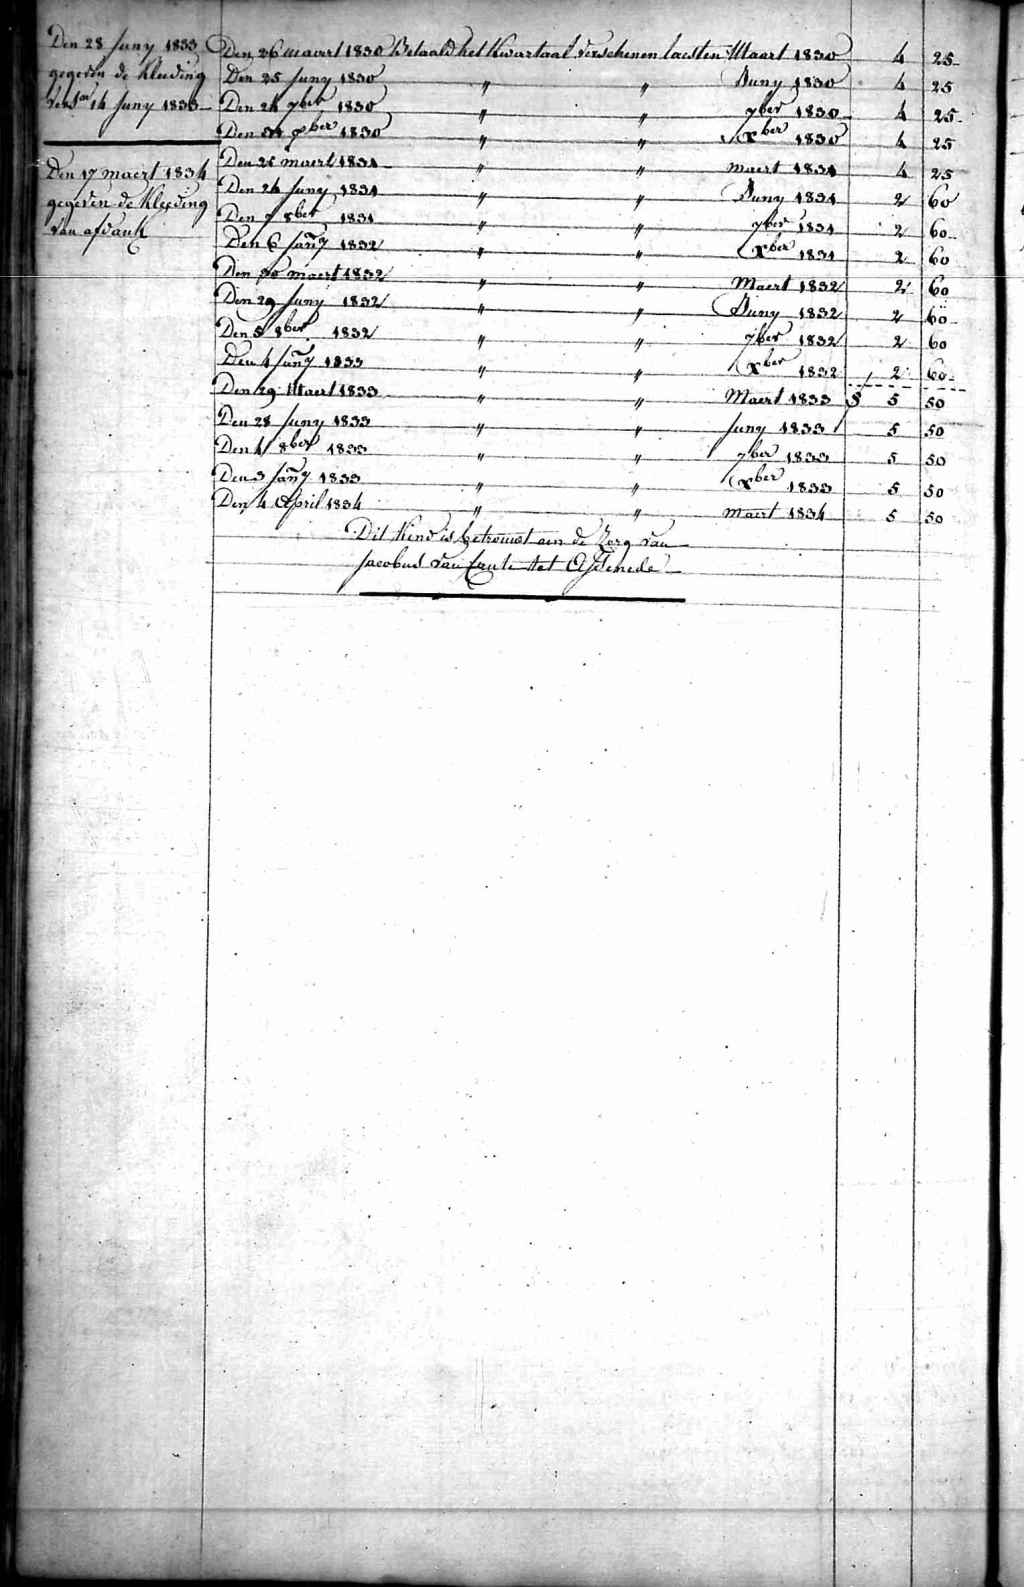 Den 28 Juny 1833
gegeven de kleeding
versn 14 Juny 1833
Den 17 maert 1834
gegeven de kleeding
van afdank
Den 26 maert 1830 Betaald het kwartaal verschenen laesten Maart 1830 4 25
Den 25 Juny 1830 " " Juny 1830 4 25
Den 24 7ber 1830 " " 7ber 1830 4 25
Den 1830 " " xber 1830 4 25
Den 25 maert 1831 " " maert 1831 4 25
Den 24 Juny 1831 " " Juny 1831 2 60
Den 7 8ber 1831 " " 7ber 1831 2 60
Den 6 Jany 1832 " " xber 1831 2 60
Den 30 maert 1832 " " Maert 1832 2 60
Den 29 Juny 1832 " " Juny 1832 2 60
Den 5 8ber 1832 " " 7ber 1832 2 60
Den 4 Jany 1833 " " xber 1832 2 60
Den 29 Maert 1833 " " Maert 1833 5 50
Den 28 Juny 1833 " " Juny 1833 5 50
Den 4 8ber 1833 " " 7ber 1833 5 50
Den 3 Jany 1833 " " xber 1833 5 50
Den 4 April 1834 " " maert 1834 5 50
Dit kind is betrouwt aen de zorg van
Jacobus van tot Assenede